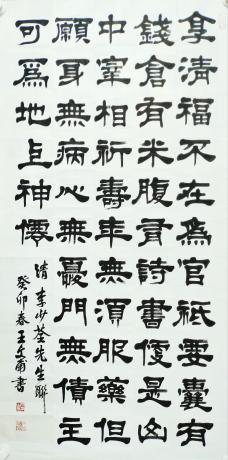 享清福不在為官祇要囊有
錢倉有米腹有詩書便是山
中宰相祈壽年無須服藥但
願身無病心無憂門無債主
可為地上神僊
清李少荃先生聯
癸卯春王書